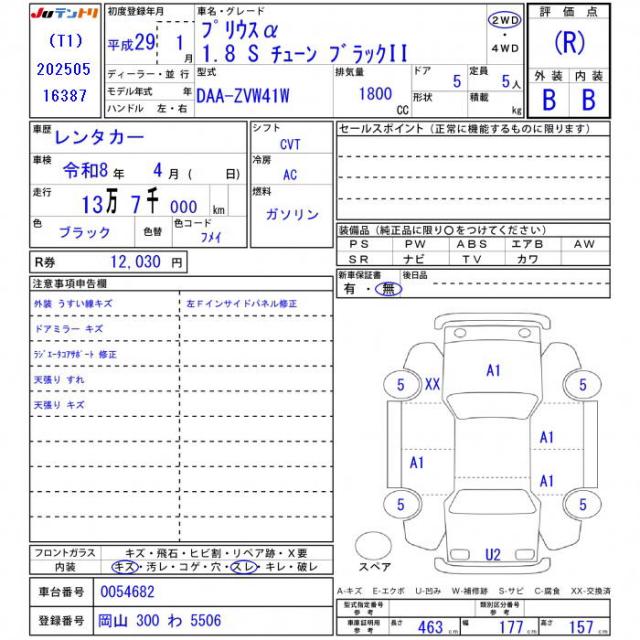 JUテントリ
(T1)
202505
16387
初度登録年月
平成29 1月
ディーラー・並行
モデル年式 年
ハンドル 左・右
車名・グレード
プリウスα
1.8 S チューン ブラックII
2WD
・
4WD
型式
DAA-ZVW41W
排気量
1800 CC
ドア 5
形状
定員 5人
積載 kg
評価点
(R)
外装 内装
B B
車歴 レンタカー
車検 令和8年 4月( 日)
走行 13万 7千 000 km
色 ブラック 色替 色コード フメイ
シフト
CVT
冷房
AC
燃料
ガソリン
R券 12,030 円
セールスポイント(正常に機能するものに限ります)
装備品(純正品に限り○をつけてください)
PS PW ABS エアB AW
SR ナビ TV カワ
新車保証書 後日品
有・無
注意事項申告欄
外装 うすい線キズ 左Fインサイドパネル修正
ドアミラー キズ
ラジエータコアサポート 修正
天張り すれ
天張り キズ
フロントガラス キズ・飛石・ヒビ割・リペア跡・X要
内装 キズ・汚レ・コゲ・穴・スレ・キレ・破レ
車台番号 0054682
登録番号 岡山 300 わ 5506
5 XX A1 5
A1
A1 A1
5 5
U2
スペア
A-キズ E-エクボ U-凹み W-補修跡 S-サビ C-腐食 XX-交換済
型式指定番号 類別区分番号
車庫証明用参考 長さ 463 cm 幅 177 cm 高さ 157 cm